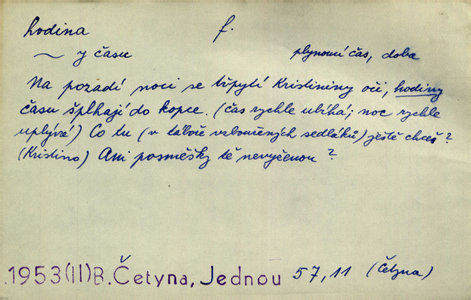 hodina f.
~ y času plynoucí čas, doba
Na pozadí noci se třpytí Kristininy oči, hodiny
času šplhají do kopce. (čas rychle ubíhá; noc rychle
uplývá) Co tu (v tlačě vrbouřených sedláků) ještě chceš?
(Kristino) Ani posměšky tě nevyženou?
1953(II)B. Četyna, Jednou 57,11 (Četyna)